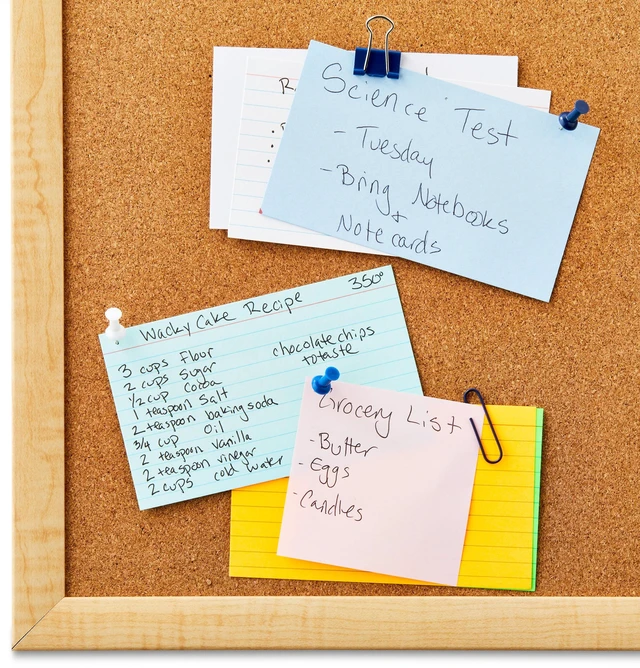 Science Test
- Tuesday
- Bring Notebooks
&
Note cards
Wacky Cake Recipe 350°
3 cups flour
2 cups sugar
1/2 cup cocoa
1 teaspoon salt
2 teaspoon baking soda
3/4 cup oil
2 teaspoon vanilla
2 teaspoon vinegar
2 cups cold water
chocolate chips
to taste
Grocery List
- Butter
- Eggs
- Candles